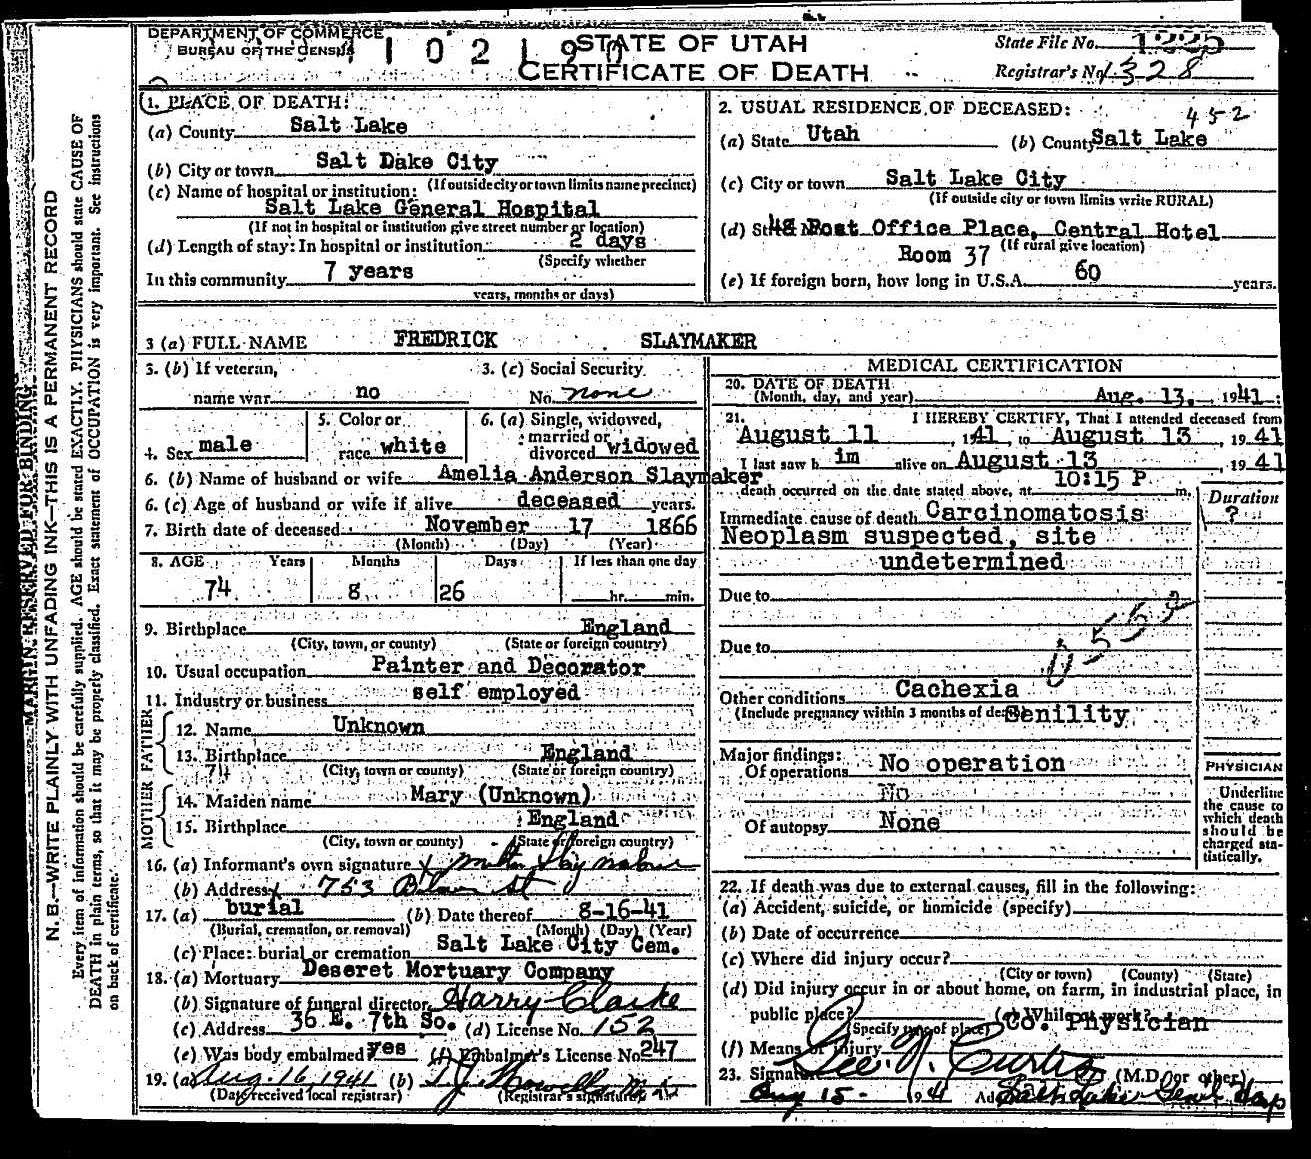 DEPARTMENT OF COMMERCE
BUREAU OF THE CENSUS
STATE OF UTAH
CERTIFICATE OF DEATH
State File No. 1225
Registrar's No. 1328
1. PLACE OF DEATH:
(a) County Salt Lake
(b) City or town Salt Dake City
(If outside city or town limits name precinct)
(c) Name of hospital or institution:
Salt Lake General Hospital
(If not in hospital or institution give street number or location)
(d) Length of stay: In hospital or institution 2 days
(Specify whether
In this community 7 years
years, months or days)
2. USUAL RESIDENCE OF DECEASED: 452
(a) State Utah (b) County Salt Lake
(c) City or town Salt Lake City
(If outside city or town limits write RURAL)
(d) St 48 Post Office Place, Central Hotel
Room 37 (If rural give location)
(e) If foreign born, how long in U.S.A. 60 years.
3 (a) FULL NAME FREDRICK SLAYMAKER
3. (b) If veteran,
name war no
3. (c) Social Security
No. none
4. Sex male
5. Color or
race white
6. (a) Single, widowed,
married or
divorced widowed
6. (b) Name of husband or wife Amelia Anderson Slaymaker
6. (c) Age of husband or wife if alive deceased years.
7. Birth date of deceased November 17 1866
(Month) (Day) (Year)
8. AGE Years Months Days If less than one day
74 8 26 hr. min.
9. Birthplace England
(City, town, or county) (State or foreign country)
10. Usual occupation Painter and Decorator
11. Industry or business self employed
FATHER
12. Name Unknown
13. Birthplace England
74 (City, town or county) (State or foreign country)
MOTHER
14. Maiden name Mary (Unknown)
15. Birthplace England
(City, town or county) (State or foreign country)
16. (a) Informant's own signature x Milton Slaymaker
(b) Address 753 St
17. (a) burial (b) Date thereof 8-16-41
(Burial, cremation, or removal) (Month) (Day) (Year)
(c) Place: burial or cremation Salt Lake City Cem.
18. (a) Mortuary Deseret Mortuary Company
(b) Signature of funeral director Harry Clarke
(c) Address 36 E. 7th So. (d) License No. 152
(e) Was body embalmed yes (f) Embalmer's License No 247
19. (a) Aug. 16, 1941 (b) T. J. Howells M.D.
(Date received local registrar) (Registrar's signature)
MEDICAL CERTIFICATION
20. DATE OF DEATH
(Month, day, and year) Aug. 13, 1941
21. I HEREBY CERTIFY, That I attended deceased from
August 11, 1941, to August 13, 1941
I last saw h im alive on August 13, 1941
death occurred on the date stated above, at 10:15 P m.
Duration
?
Immediate cause of death Carcinomatosis
Neoplasm suspected, site
undetermined
Due to
Due to
0552
Other conditions Cachexia
(Include pregnancy within 3 months of death) Senility
Major findings:
Of operations No operation
No
Of autopsy None
PHYSICIAN
Underline
the cause to
which death
should be
charged sta-
tistically.
22. If death was due to external causes, fill in the following:
(a) Accident, suicide, or homicide (specify)
(b) Date of occurrence
(c) Where did injury occur?
(City or town) (County) (State)
(d) Did injury occur in or about home, on farm, in industrial place, in
public place? (e) While at work?
(Specify type of place) Co. Physician
(f) Means of injury
23. Signature Geo. N. Curtis (M.D. or other)
Aug 15 - 1941 Ad Salt Lake Genl Hosp
MARGIN RESERVED FOR BINDING
N. B.—WRITE PLAINLY WITH UNFADING INK—THIS IS A PERMANENT RECORD
Every item of information should be carefully supplied. AGE should be stated EXACTLY. PHYSICIANS should state CAUSE OF
DEATH in plain terms, so that it may be properly classified. Exact statement of OCCUPATION is very important. See instructions
on back of certificate.